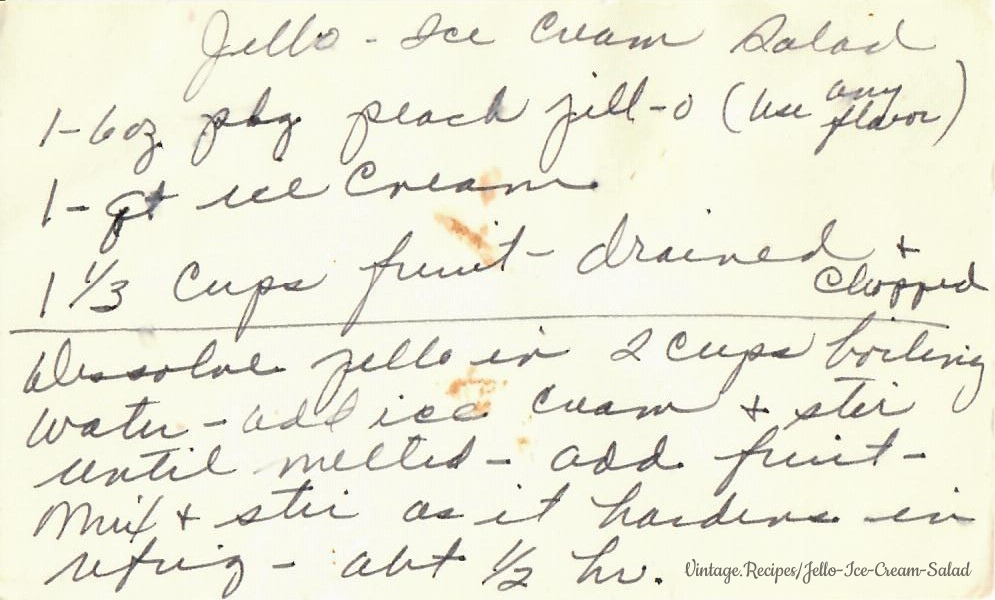 Jello - Ice Cream Salad
1-6oz pkg peach jell-o (use any flavor)
1-qt ice cream
1 1/3 cups fruit - drained + chopped
Dissolve jello in 2 cups boiling
water - add ice cream + stir
until melted - add fruit -
Mix + stir as it hardens in
refrig - abt 1/2 hr.
Vintage.Recipes/Jello-Ice-Cream-Salad